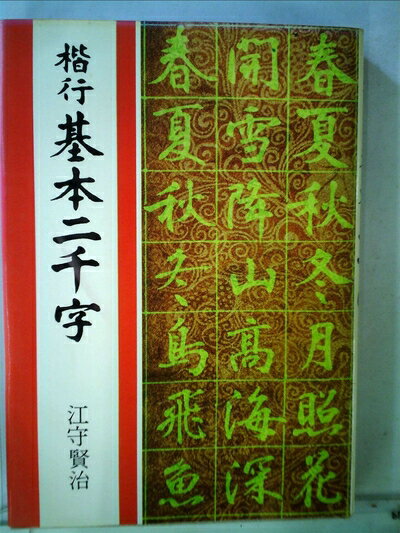 楷行 基本二千字
江守賢治
春夏秋冬月照花
開雪降山高海深
春夏秋冬鳥飛魚